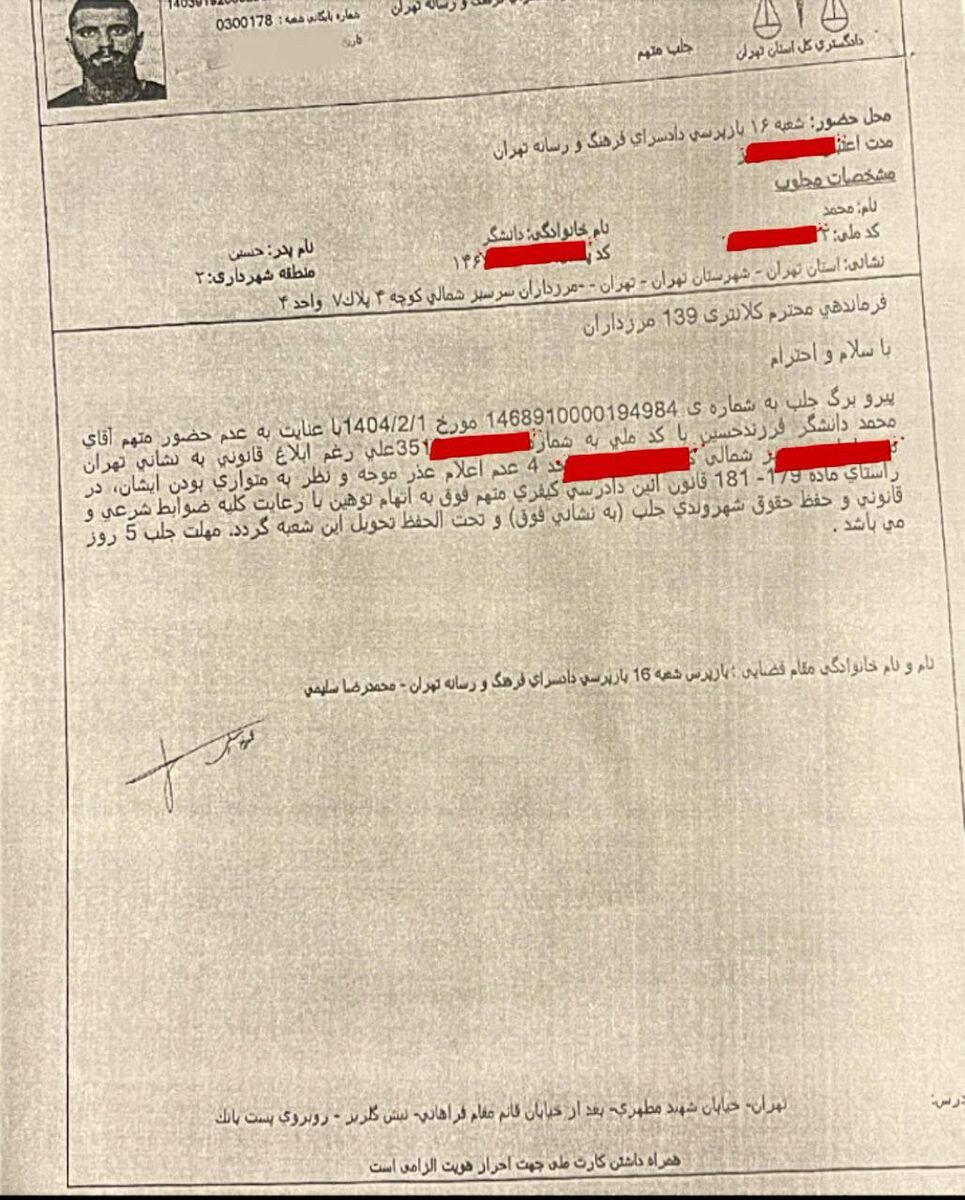 فرهنگ و رسانه تهران
شماره بایگانی شعبه : 0300178
تاریخ
دادگستری کل استان تهران
جلب متهم
محل حضور: شعبه ۱۶ بازپرسی دادسرای فرهنگ و رسانه تهران
مدت
مشخصات مجلوب
نام: محمد نام خانوادگی: دانشگر نام پدر: حسین
کد ملی: کد ۱۴۶ منطقه شهرداری: ۲
نشانی: استان تهران - شهرستان تهران - تهران - -مرزداران سرسبز شمالي کوچه ۴ پلاك۷ واحد ۴
فرماندهي محترم کلانتری 139 مرزداران
با سلام و احترام
پیرو برگ جلب به شماره ی 1468910000194984 مورخ 1404/2/1با عنایت به عدم حضور متهم آقاي
محمد دانشگر فرزندحسین با کد ملي به 351علي رغم ابلاغ قانوني به نشاني تهران
شمالي 4 عدم اعلام عذر موجه و نظر به متواري بودن ایشان، در
راستاي ماده 179- 181 قانون آئین دادرسي کیفري متهم فوق به اتهام توهین با رعایت کلیه ضوابط شرعي و
قانوني و حفظ حقوق شهروندي جلب (به نشاني فوق) و تحت الحفظ تحویل این شعبه گردد. مهلت جلب 5 روز
مي باشد .
نام و نام خانوادگي مقام قضایي : بازپرس شعبه 16 بازپرسي دادسراي فرهنگ و رسانه تهران - محمدرضا سلیمي
تهران- خیابان شهید مطهري- بعد از خیابان قائم مقام فراهاني- نبش گلریز - روبروي پست بانك
همراه داشتن کارت ملی جهت احراز هویت الزامی است